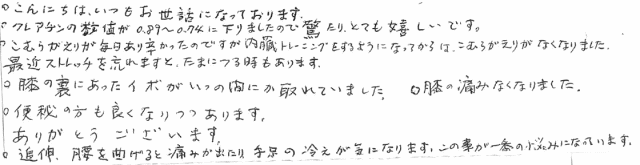 ○こんにちは、いつもお世話になっております。
○クレアチンの数値が0.89〜0.74に下りましたので驚たり、とても嬉しいです。
○こむらがえりが毎日あり辛かったのですが内臓トレーニングをするようになってからは、こむらがえりがなくなりました。
最近ストレッチを忘れますと、たまにつる時もあります。
○膝の裏にあったイボがいつの間にか取れていました。 ○膝の痛みなくなりました。
○便秘の方も良くなりつつあります。
ありがとうございます。
○追伸、腰を曲げると痛みが出たり手足の冷えが気になります。この事が一番の悩みになっています。